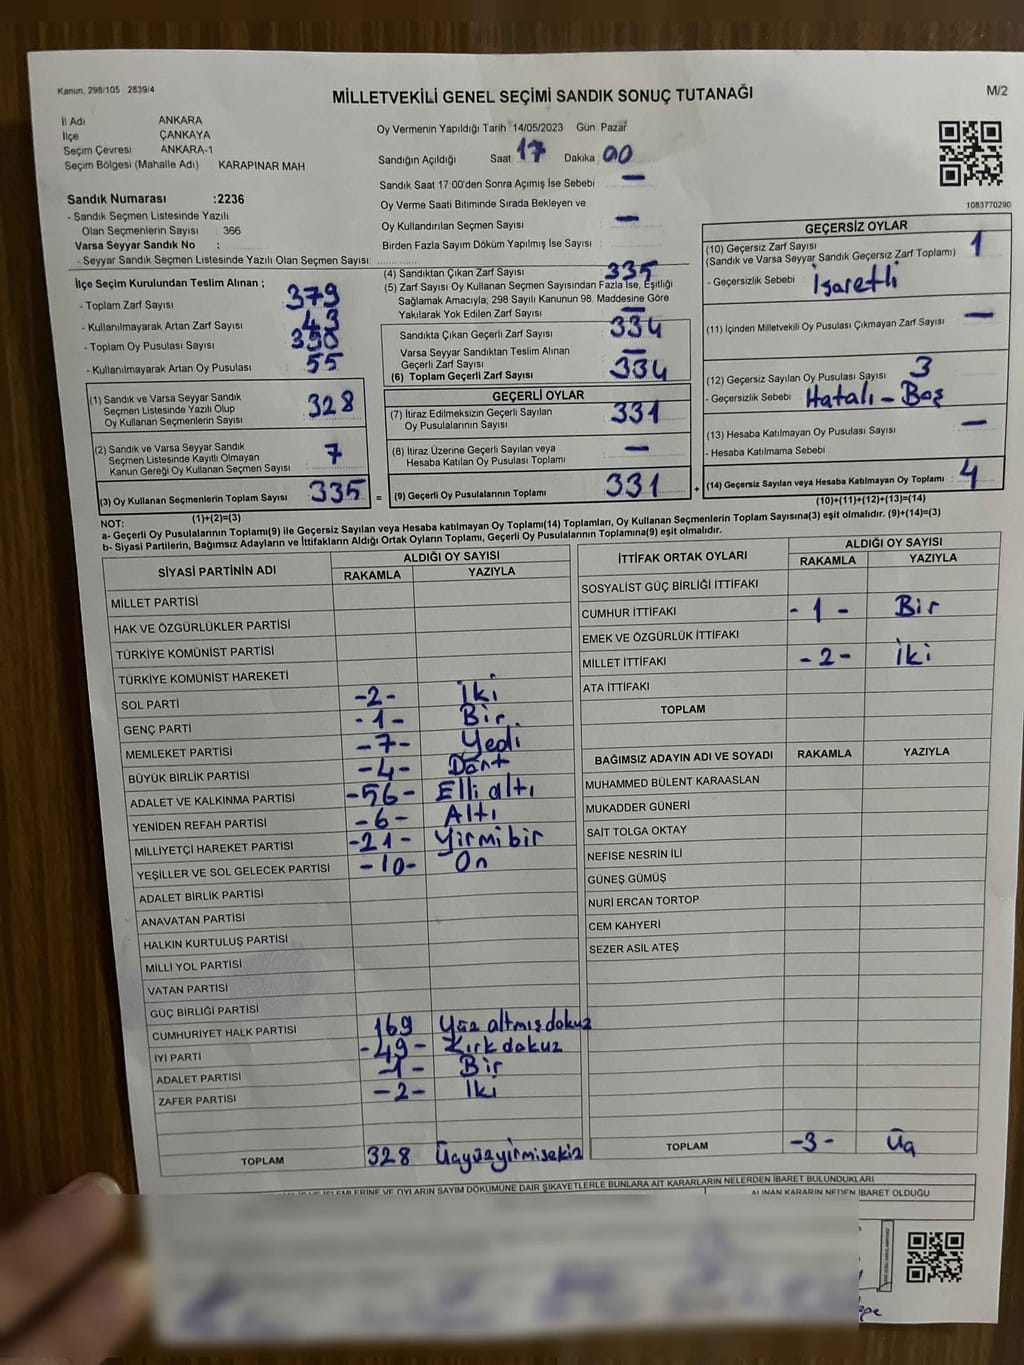 Kanun, 298/105 2839/4
MİLLETVEKİLİ GENEL SEÇİMİ SANDIK SONUÇ TUTANAĞI
M/2
İl Adı ANKARA
İlçe ÇANKAYA
Seçim Çevresi ANKARA-1
Seçim Bölgesi (Mahalle Adı) KARAPINAR MAH
Oy Vermenin Yapıldığı Tarih 14/05/2023 Gün Pazar
Sandığın Açıldığı Saat 17 Dakika 00
Sandık Saat 17:00'den Sonra Açımış İse Sebebi : —
Oy Verme Saati Bitiminde Sırada Bekleyen ve
Oy Kullandırılan Seçmen Sayısı : —
Birden Fazla Sayım Döküm Yapılmış İse Sayısı :
1083770290
Sandık Numarası :2236
- Sandık Seçmen Listesinde Yazılı
Olan Seçmenlerin Sayısı : 366
Varsa Seyyar Sandık No :
- Seyyar Sandık Seçmen Listesinde Yazılı Olan Seçmen Sayısı:
İlçe Seçim Kurulundan Teslim Alınan ;
- Toplam Zarf Sayısı : 379
- Kullanılmayarak Artan Zarf Sayısı :
- Toplam Oy Pusulası Sayısı :
- Kullanılmayarak Artan Oy Pusulası : 55
(1) Sandık ve Varsa Seyyar Sandık
Seçmen Listesinde Yazılı Olup
Oy Kullanan Seçmenlerin Sayısı 328
(2) Sandık ve Varsa Seyyar Sandık
Seçmen Listesinde Kayıtlı Olmayan
Kanun Gereği Oy Kullanan Seçmen Sayısı 7
(3) Oy Kullanan Seçmenlerin Toplam Sayısı 335 =
(1)+(2)=(3)
(4) Sandıktan Çıkan Zarf Sayısı : 335
(5) Zarf Sayısı Oy Kullanan Seçmen Sayısından Fazla İse, Eşitliği
Sağlamak Amacıyla, 298 Sayılı Kanunun 98. Maddesine Göre
Yakılarak Yok Edilen Zarf Sayısı : —
Sandıkta Çıkan Geçerli Zarf Sayısı : 334
Varsa Seyyar Sandıktan Teslim Alınan
Geçerli Zarf Sayısı : —
(6) Toplam Geçerli Zarf Sayısı : 334
GEÇERLİ OYLAR
(7) İtiraz Edilmeksizin Geçerli Sayılan
Oy Pusulalarının Sayısı : 331
(8) İtiraz Üzerine Geçerli Sayılan veya
Hesaba Katılan Oy Pusulası Toplamı : —
(9) Geçerli Oy Pusulalarının Toplamı 331 +
GEÇERSİZ OYLAR
(10) Geçersiz Zarf Sayısı : 1
(Sandık ve Varsa Seyyar Sandık Geçersiz Zarf Toplamı)
- Geçersizlik Sebebi : İşaretli
(11) İçinden Milletvekili Oy Pusulası Çıkmayan Zarf Sayısı : —
(12) Geçersiz Sayılan Oy Pusulası Sayısı : 3
- Geçersizlik Sebebi : Hatalı - Boş
(13) Hesaba Katılmayan Oy Pusulası Sayısı : —
- Hesaba Katılmama Sebebi :
(14) Geçersiz Sayılan veya Hesaba Katılmayan Oy Toplamı 4
(10)+(11)+(12)+(13)=(14)
NOT:
a- Geçerli Oy Pusulalarının Toplamı(9) ile Geçersiz Sayılan veya Hesaba katılmayan Oy Toplamı(14) Toplamları, Oy Kullanan Seçmenlerin Toplam Sayısına(3) eşit olmalıdır. (9)+(14)=(3)
b- Siyasi Partilerin, Bağımsız Adayların ve İttifakların Aldığı Ortak Oyların Toplamı, Geçerli Oy Pusulalarının Toplamına(9) eşit olmalıdır.
SİYASİ PARTİNİN ADI ALDIĞI OY SAYISI
RAKAMLA YAZIYLA
MİLLET PARTİSİ
HAK VE ÖZGÜRLÜKLER PARTİSİ
TÜRKİYE KOMÜNİST PARTİSİ
TÜRKİYE KOMÜNİST HAREKETİ
SOL PARTİ -2- İki
GENÇ PARTİ -1- Bir
MEMLEKET PARTİSİ -7- Yedi
BÜYÜK BİRLİK PARTİSİ -4- Dört
ADALET VE KALKINMA PARTİSİ -56- Elli altı
YENİDEN REFAH PARTİSİ -6- Altı
MİLLİYETÇİ HAREKET PARTİSİ -21- Yirmi bir
YEŞİLLER VE SOL GELECEK PARTİSİ -10- On
ADALET BİRLİK PARTİSİ
ANAVATAN PARTİSİ
HALKIN KURTULUŞ PARTİSİ
MİLLİ YOL PARTİSİ
VATAN PARTİSİ
GÜÇ BİRLİĞİ PARTİSİ
CUMHURİYET HALK PARTİSİ 169 Yüz altmış dokuz
İYİ PARTİ -49- Kırk dokuz
ADALET PARTİSİ -1- Bir
ZAFER PARTİSİ -2- İki
TOPLAM 328 Üçyüzyirmisekiz
İTTİFAK ORTAK OYLARI ALDIĞI OY SAYISI
RAKAMLA YAZIYLA
SOSYALİST GÜÇ BİRLİĞİ İTTİFAKI
CUMHUR İTTİFAKI -1- Bir
EMEK VE ÖZGÜRLÜK İTTİFAKI
MİLLET İTTİFAKI -2- İki
ATA İTTİFAKI
TOPLAM
BAĞIMSIZ ADAYIN ADI VE SOYADI RAKAMLA YAZIYLA
MUHAMMED BÜLENT KARAASLAN
MUKADDER GÜNERİ
SAİT TOLGA OKTAY
NEFİSE NESRİN İLİ
GÜNEŞ GÜMÜŞ
NURİ ERCAN TORTOP
CEM KAHYERİ
SEZER ASİL ATEŞ
TOPLAM -3- Üç
İŞLEMLERİNE VE OYLARIN SAYIM DÖKÜMÜNE DAİR ŞİKAYETLERLE BUNLARA AİT KARARLARIN NELERDEN İBARET BULUNDUKLARI
ALINAN KARARIN NEDEN İBARET OLDUĞU